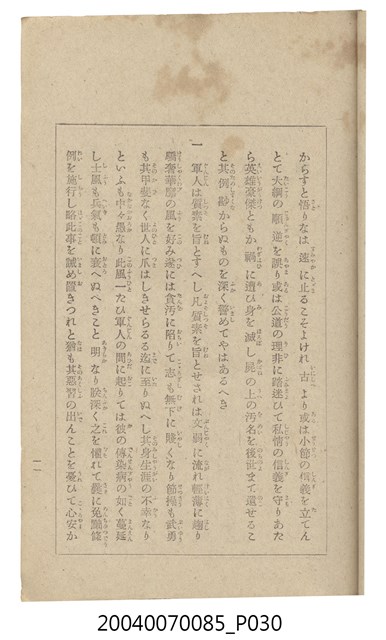 からすと悟りなは速に止るこそよけれ古より或は小節の信義を立てん
とて大綱の順逆を誤り或は公道の理非に踏迷ひて私情の信義を守りあた
ら英雄豪傑ともか禍に遭ひ身を滅し屍の上の汚名を後世まて遺せるこ
と其例尠からぬものを深く警めてやはあるへき
一 軍人は質素を旨とすへし凡質素を旨とせされは文弱に流れ輕薄に趨り
驕奢華靡の風を好み遂には貪汚に陷りて志も無下に賤くなり節操も武勇
も其甲斐なく世人に爪はしきせらるる迄に至りぬへし其身生涯の不幸なり
といふも中々愚なり此風一たひ軍人の間に起りては彼の傳染病の如く蔓延
し士風も兵氣も頓に衰へぬへきこと明なり朕深く之を懼れて曩に免黜條
例を施行し略此事を誡め置きつれと猶も其惡習の出んことを憂ひて心安か
一一
20040070085_P030